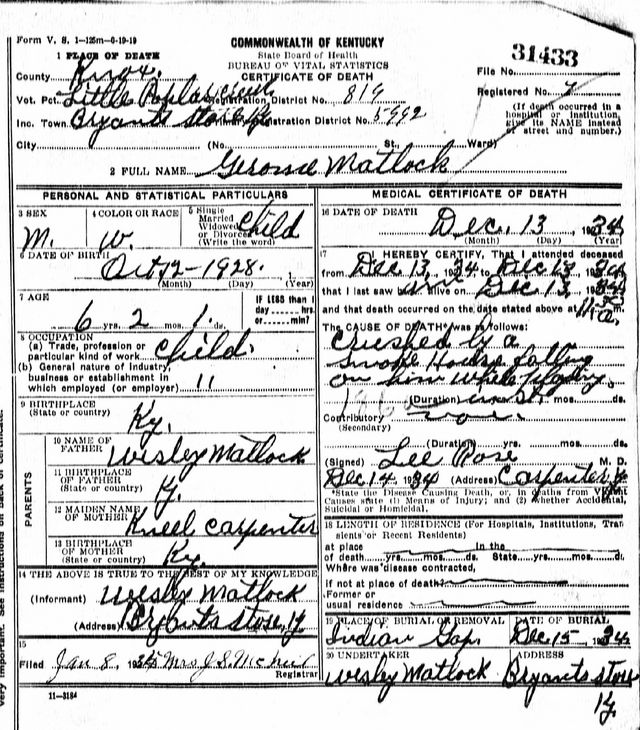 Form V. S. 1-125m-6-19-19
COMMONWEALTH OF KENTUCKY
State Board of Health
BUREAU OF VITAL STATISTICS
CERTIFICATE OF DEATH
31433
File No.
1 PLACE OF DEATH
County Knox.
Registered No. 7
Vot. Pct. Little Poplar Creek Registration District No. 819
(If death occurred in a hospital or institution, give its NAME instead of street and number.)
Inc. Town Bryants Store Ky Primary Registration District No. 5992
City (No. St., Ward)
2 FULL NAME Matlock
PERSONAL AND STATISTICAL PARTICULARS
3 SEX
M.
4 COLOR OR RACE
W.
5 Single
Married
Widowed
or Divorced
(Write the word)
Child
6 DATE OF BIRTH
Oct 12-1928.
(Month) (Day) (Year)
7 AGE
6 yrs. 2 mos. 1 ds.
IF LESS than 1
day hrs.
or min?
8 OCCUPATION
(a) Trade, profession or
particular kind of work Child
(b) General nature of Industry,
business or establishment in
which employed (or employer) 11
9 BIRTHPLACE
(State or country) Ky.
PARENTS
10 NAME OF
FATHER Wesley Matlock
11 BIRTHPLACE
OF FATHER
(State or country) Ky.
12 MAIDEN NAME
OF MOTHER Carpenter
13 BIRTHPLACE
OF MOTHER
(State or country) Ky.
14 THE ABOVE IS TRUE TO THE BEST OF MY KNOWLEDGE
(Informant) Wesley Matlock
(Address) Bryants Store, Ky.
15
Filed Jan 8, 1935 Mrs J.S. Registrar
11-3184
MEDICAL CERTIFICATE OF DEATH
16 DATE OF DEATH
Dec. 13, 1934
(Month) (Day) (Year)
17 I HEREBY CERTIFY, That I attended deceased
from Dec 13, 1934 to Dec 13, 1934
that I last saw him alive on Dec 13, 1934
and that death occurred on the date stated above at 11 a.
The CAUSE OF DEATH* was as follows:
Crushed by a
Smoke House falling
on him while
(Duration) yrs. mos. ds.
Contributory
(Secondary)
(Duration) yrs. mos. ds.
(Signed) Lee Rose M. D.
Dec 14 1934 (Address) Carpenter, Ky
*State the Disease Causing Death, or, in deaths from Violent
Causes state (1) Means of Injury; and (2) whether Accidental,
Suicidal or Homicidal.
18 LENGTH OF RESIDENCE (For Hospitals, Institutions, Tran
sients or Recent Residents)
at place In the
of death yrs. mos. ds. State yrs. mos. ds.
Where was disease contracted,
if not at place of death?
Former or
usual residence
19 PLACE OF BURIAL OR REMOVAL
Indian Gap
DATE OF BURIAL
Dec 15, 1934
20 UNDERTAKER
Wesley Matlock
ADDRESS
Bryants Store
Ky.
very important. See instructions on back of certificate.